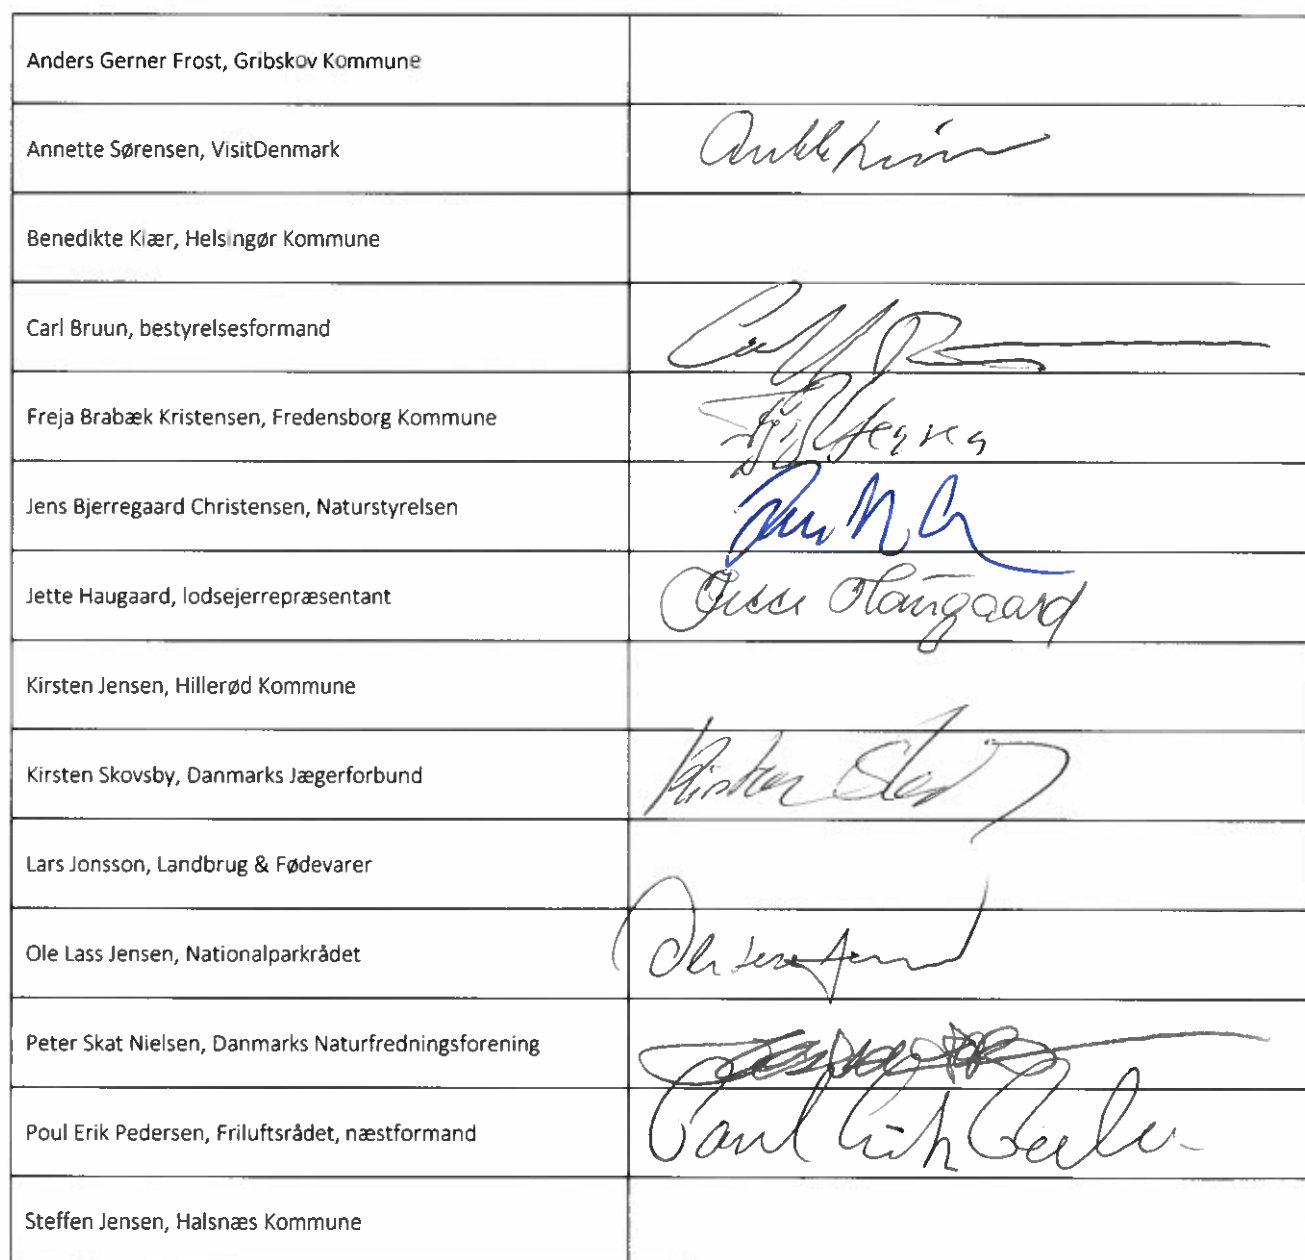 Anders Gerner Frost, Gribskov Kommune
Annette Sørensen, VisitDenmark
Benedikte Kiær, Helsingør Kommune
Carl Bruun, bestyrelsesformand
Freja Brabæk Kristensen, Fredensborg Kommune
Jens Bjerregaard Christensen, Naturstyrelsen
Jette Haugaard, lodsejerrepræsentant
Haugaard
Kirsten Jensen, Hillerød Kommune
Kirsten Skovsby, Danmarks Jægerforbund
Kirsten
Lars Jonsson, Landbrug & Fødevarer
Ole Lass Jensen, Nationalparkrådet
Peter Skat Nielsen, Danmarks Naturfredningsforening
Poul Erik Pedersen, Friluftsrådet, næstformand
Poul Erik
Steffen Jensen, Halsnæs Kommune